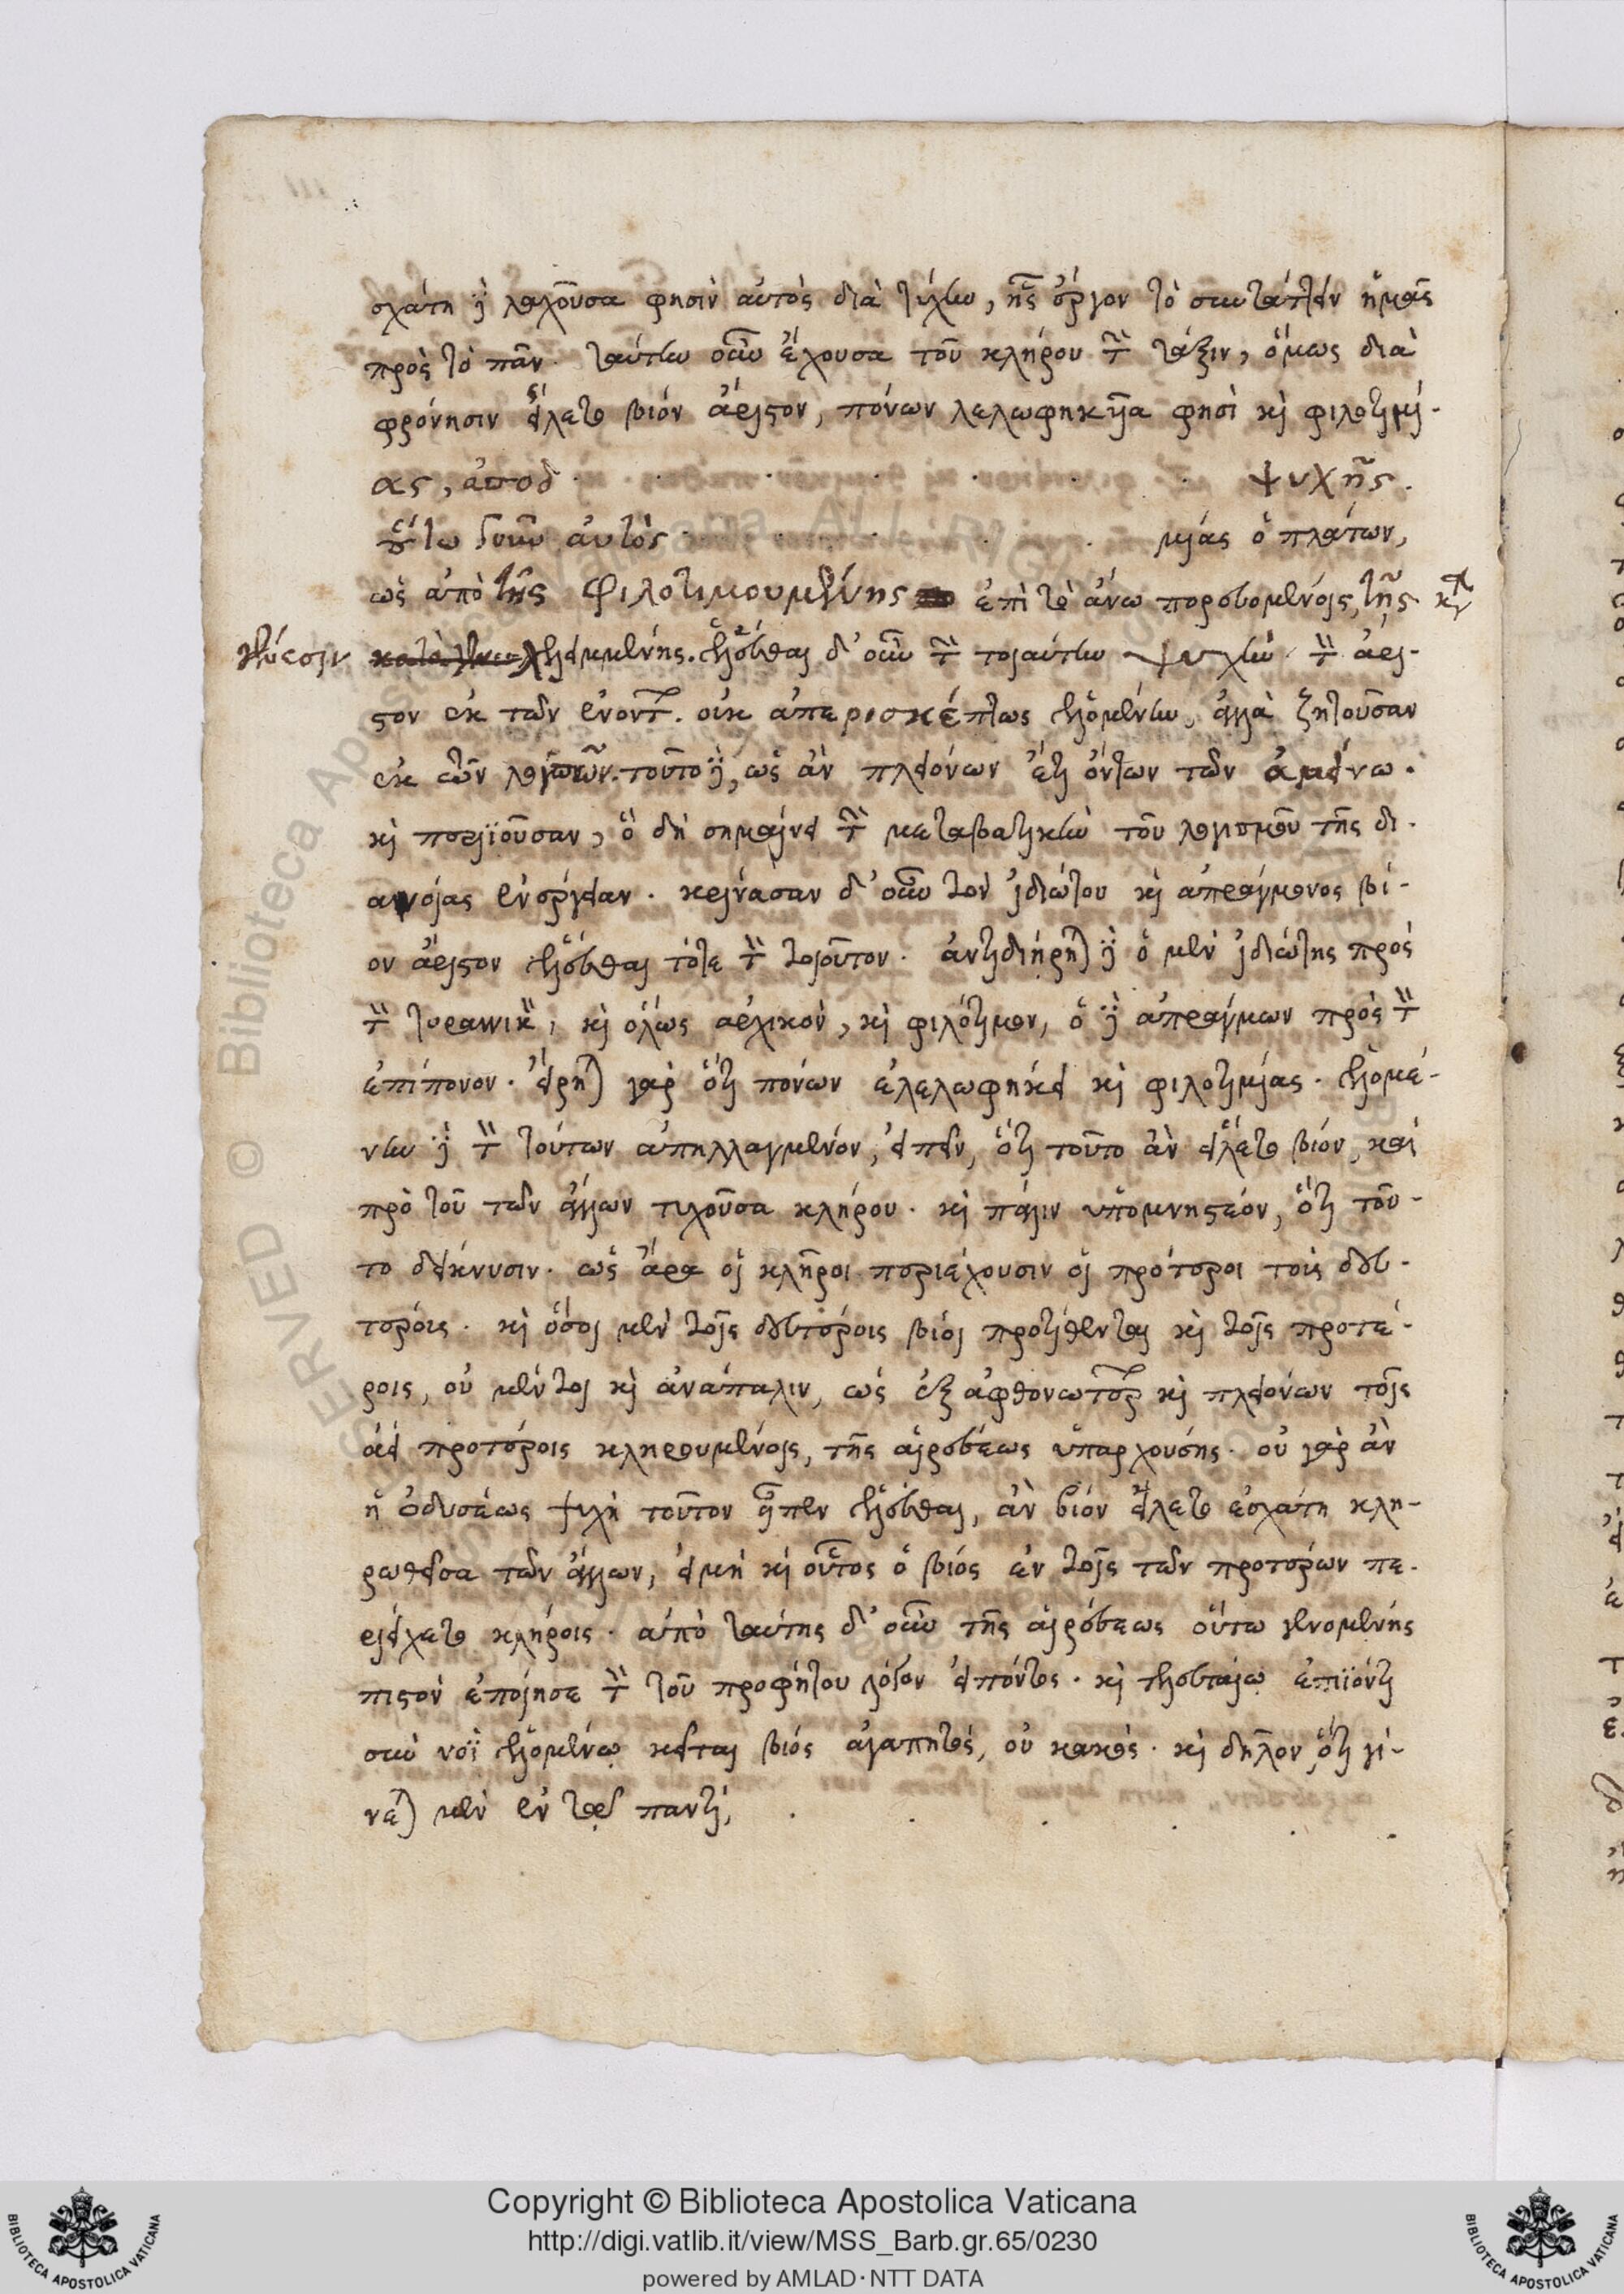 σχάτη δὲ λαχοῦσα φησὶν αὐτὸς διὰ τύχην, ἧς ἔργον τὸ συντάττειν ἡμᾶς
πρὸς τὸ πᾶν. ταύτην οὖν ἔχουσα τοῦ κλήρου τὴν τάξιν, ὅμως διὰ
φρόνησιν εἵλετο βίον ἄριστον, πόνων λελωφηκυῖα φησὶ καὶ φιλοτιμί-
ας, ἀποδ . . . . . . ψυχῆς.
αὐτὸς . . . . μίας ὁ πλάτων,
ὡς ἀπὸ τῆς φιλοτιμουμένης ἐπὶ τὸ ἄνω πορευομένοις, τῆς
δ' οὖν τὴν τοιαύτην ψυχὴν τὸν ἄρι-
στον ἐκ τῶν ἐνόντων. οὐκ ἀπερισκέπτως αἱρομένην, ἀλλὰ ζητοῦσαν
ἐκ τῶν τοῦτο δὲ, ὡς ἂν πλειόνων ἔτι ὄντων τῶν ἀμείνω.
καὶ περιϊοῦσαν, ὃ δὴ σημαίνει τὴν μεταβατικὴν τοῦ λογισμοῦ τῆς δι-
ανοίας ἐνέργειαν. κρίνασαν δ' οὖν τὸν ἰδιώτου καὶ ἀπράγμονος βί-
ον ἄριστον αἱρεῖσθαι τότε τὸν τοιοῦτον. ἀντιδιῄρηται δὲ ὁ μὲν ἰδιώτης πρὸς
τὸν τυραννικὸν, καὶ ὅλως ἀρχικὸν, καὶ φιλότιμον, ὁ δὲ ἀπράγμων πρὸς τὸν
ἐπίπονον. εἴρηται γὰρ ὅτι πόνων ἐλελωφήκει καὶ φιλοτιμίας. αἱρομέ-
νην δὲ τὸν τούτων ἀπηλλαγμένον, εἰπεῖν, ὅτι τοῦτο ἂν εἵλετο βίον, καὶ
πρὸ τοῦ τῶν ἄλλων τυχοῦσα κλήρου. καὶ πάλιν ὑπομνηστέον, ὅτι τοῦ-
το δείκνυσιν. ὡς ἄρα οἱ κλῆροι περιέχουσιν οἱ πρότεροι τοὺς δευ-
τέροις. καὶ ὅσοι μὲν τοῖς δευτέροις βίοι προτίθενται καὶ τοῖς προτέ-
ροις, οὐ μέντοι καὶ ἀνάπαλιν, ὡς ἐξ ἀφθονωτέρων καὶ πλειόνων τοῖς
ἀεὶ προτέροις κληρουμένοις, τῆς αἱρέσεως ὑπαρχούσης. οὐ γὰρ ἂν
ἡ ὀδυσέως ψυχὴ τοῦτον εἶπεν αἱρεῖσθαι, ἂν βίον εἵλετο ἐσχάτη κλη-
ρωθεῖσα τῶν ἄλλων, εἰ μὴ καὶ οὗτος ὁ βίος ἐν τοῖς τῶν προτέρων πε-
ριείχετο κλήροις. ἀπὸ ταύτης δ' οὖν τῆς αἱρέσεως οὕτω γενομένης
πιστὸν ἐποίησε τὸν τοῦ προφήτου λόγον εἰπόντος. καὶ τελευταίῳ ἐπιϊόντι
σὺν νόϊ ἑλομένῳ κεῖται βίος ἀγαπητὸς, οὐ κακὸς. καὶ δῆλον, ὅτι γί-
νεται μὲν ἐν τῷ παντὶ, . . . . . .
Copyright © Biblioteca Apostolica Vaticana
http://digi.vatlib.it/view/MSS_Barb.gr.65/0230
powered by AMLAD · NTT DATA